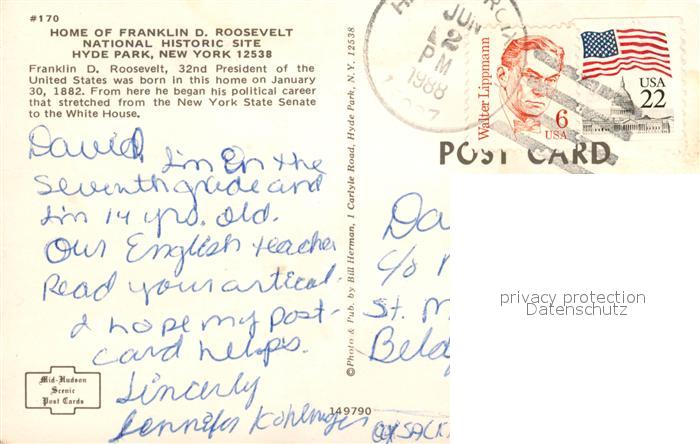 #170
HOME OF FRANKLIN D. ROOSEVELT
NATIONAL HISTORIC SITE
HYDE PARK, NEW YORK 12538
Franklin D. Roosevelt, 32nd President of the
United States was born in this home on January
30, 1882. From here he began his political career
that stretched from the New York State Senate
to the White House.
David, I'm in the
seventh grade and
I'm 14 yrs. old.
Our English teacher
Read your artical.
I hope my post-
card helps.
Sincerly
Jennifer
Mid-Hudson
Scenic
Post Cards
149790
©Photo & Pub. by Bill Herman, 1 Carlyle Road, Hyde Park, N.Y. 12538
JUN
2
PM
1988
Walter Lippmann
6
USA
USA
22
POST CARD
Da
c/o
St. M
Belg
privacy protection
Datenschutz